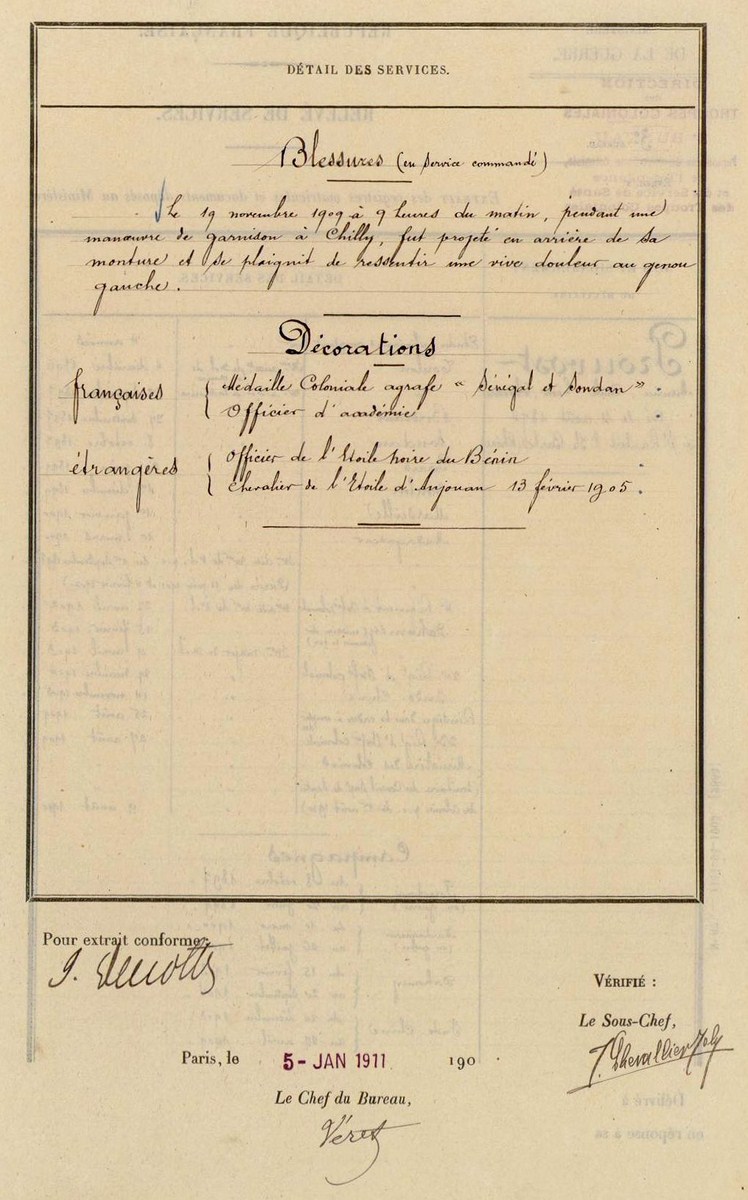 DÉTAIL DES SERVICES.
Blessures (en service commandé)
Le 19 novembre 1909 à 9 heures du matin, pendant une
manœuvre de garnison à Chilly, fut projeté en arrière de sa
monture et se plaignit de ressentir une vive douleur au genou
gauche.
Décorations
françaises
Médaille Coloniale agrafe « Sénégal et Soudan ».
Officier d'académie
étrangères
Officier de l'Etoile noire du Bénin
Chevalier de l'Etoile d'Anjouan 13 février 1905.
Pour extrait conforme:
VÉRIFIÉ :
Le Sous-Chef,
Paris, le 5-JAN 1911 190
Le Chef du Bureau,